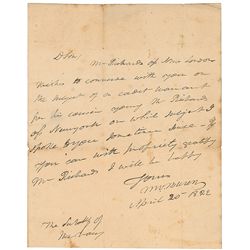 D Sir,
Mr Richards of New London
wishes to converse with you on
the subject of a cadet warrant
for his cousin young Mr Richards
of New york on which subject I
spoke to you
you can with propriety gratify
Mr Richards I will be happy
Yours
M V Buren
April 20th 1822
The Secretary of
the Navy